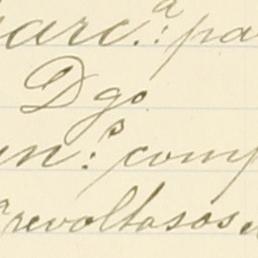 arc.ª: pa
Dgo.
n:ˢ comp
revoltosos